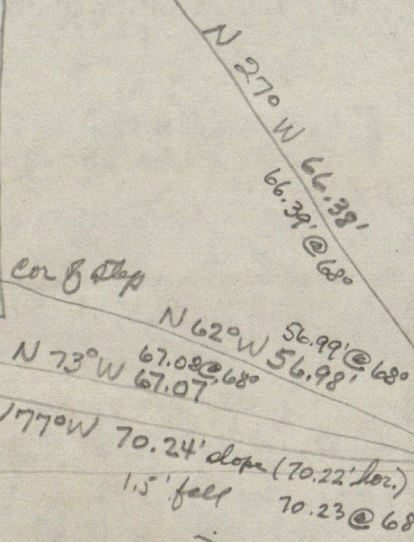 N 27° W 66.38'
66.39' @ 68°
cor of Step
N 62° W 56.98'
56.99' @ 68°
N 73° W 67.07
67.08 @ 68°
N 77° W 70.24' slope (70.22' hor.)
1.5' fall
70.23 @ 68